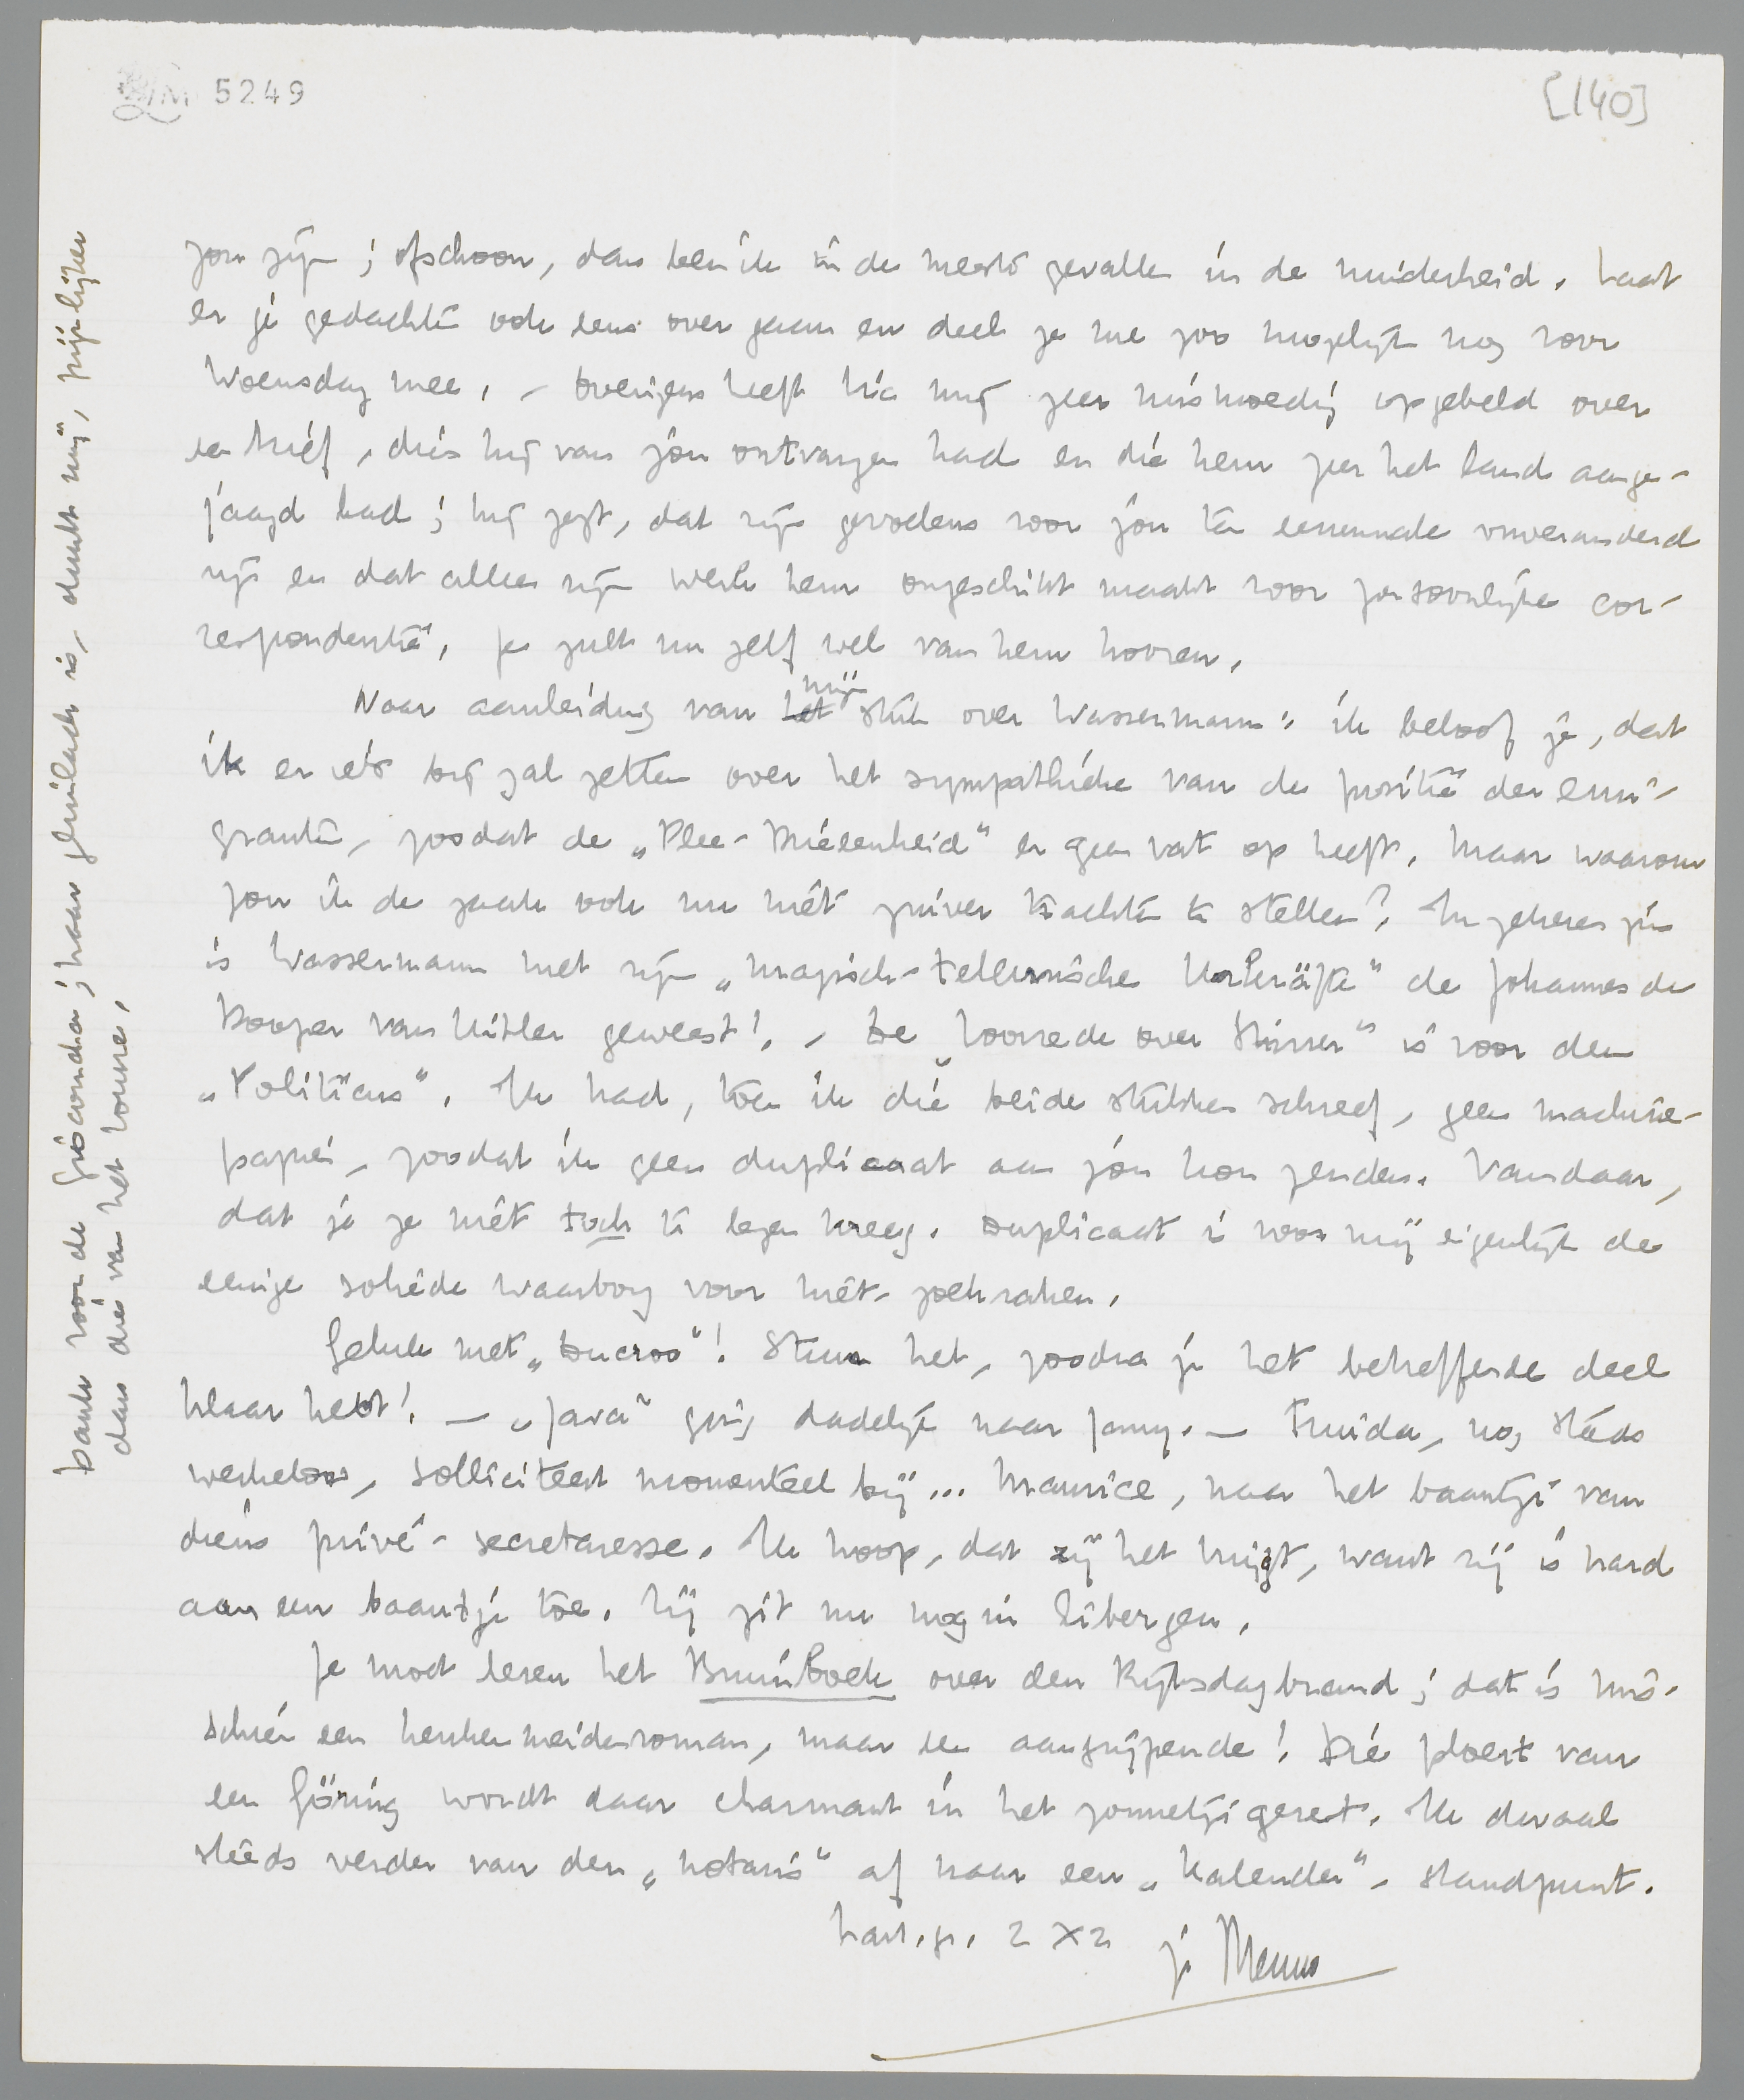 5249
[140]
zou zijn; ofschoon, dan ben ik in de meeste gevallen in de minderheid. Laat
er je gedachten ook eens over gaan en deel ze me zoo mogelijk nog voor
Woensdag mee. – Overigens heeft Vic mij zeer mismoedig opgebeld over
een brief, dien hij van jou ontvangen had en die hem zeer het land aange-
jaagd had; hij zegt, dat zijn gevoelens voor jou ten eenenmale onveranderd
zijn en dat alleen zijn werk hem ongeschikt maakt voor persoonlijke cor-
respondentie. Je zult nu zelf wel van hem hooren.
Naar aanleiding van het mijn stuk over Wassermann: ik beloof je, dat
ik er iets bij zal zetten over het sympathieke van de positie der emi-
granten, zoodat de „Plee-Brieenheid" er geen vat op heeft. Maar waarom
zou ik de zaak ook nu niet zuiver trachten te stellen? In zekeren zin
is Wassermann met zijn „magisch-tellurische Urkräfte" de Johannes de
Dooper van Hitler geweest! – De „Voorrede over Stirner" is voor den
„Politicus". Ik had, toen ik die beide stukken schreef, geen machine-
papier, zoodat ik geen duplicaat aan jou kon zenden. Vandaar,
dat je ze niet toch te lezen kreeg. Duplicaat is voor mij eigenlijk de
eenige solide waarborg voor niet-zoekraken.
Geluk met „Ducroo"! Stuur het, zoodra je het betreffende deel
klaar hebt! — „Java" ging dadelijk naar Jany. — Truida, nog steeds
werkeloos, solliciteert momenteel bij... Maurice, naar het baantje van
diens privé-secretaresse. Ik hoop, dat zij het krijgt, want zij is hard
aan een baantje toe. Zij zit nu nog in Eibergen.
Je moet lezen het Bruinboek over den Rijksdagbrand; dat is mis-
schien een keukenmeidenroman, maar een aangrijpende! Die ploert van
een Göring wordt daar charmant in het zonnetje gezet. Ik dwaal
steeds verder van den „notaris" af naar een „Kalender"-standpunt.
hart. gr. 2 x 2 je Menno
Dank voor de Gioconda; haar glimlach is, dunkt mij, pijnlijker
dan die van het Louvre.